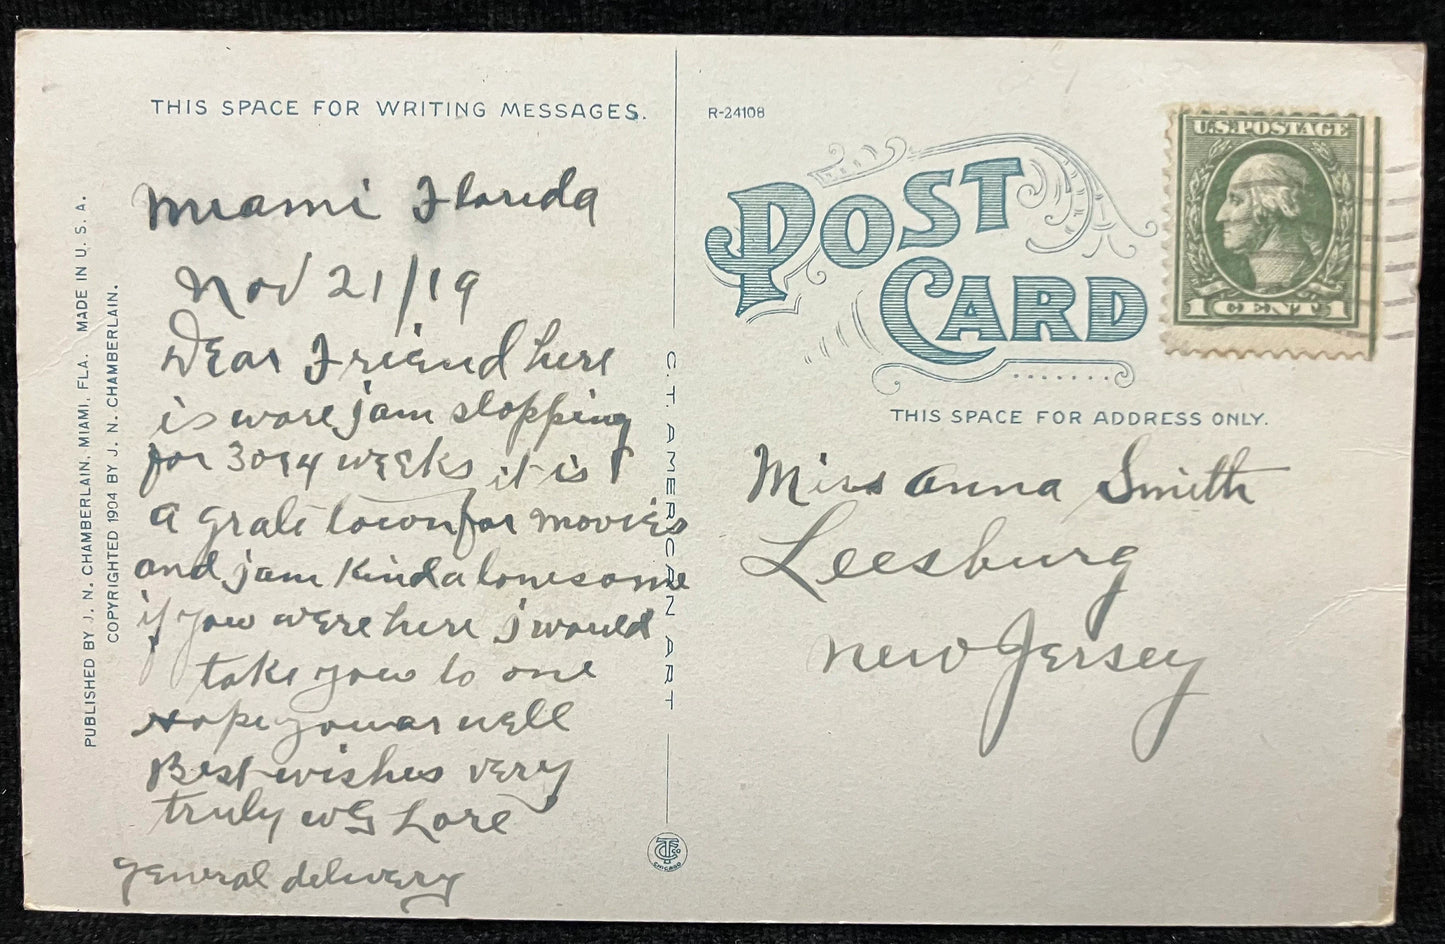 THIS SPACE FOR WRITING MESSAGES.
Miami Florida
Nov 21/19
Dear Friend here
is ware jam stopping
for 3 or 4 weeks it is
a grate town for movies
and jam kinda lonesome
if you were here j would
take you to one
Hope you ar well
Best wishes very
truly WG Lore
general delivery
PUBLISHED BY J. N. CHAMBERLAIN, MIAMI, FLA. MADE IN U. S. A.
COPYRIGHTED 1904 BY J. N. CHAMBERLAIN.
C. T. AMERICAN ART
R-24108
POST
CARD
U.S. POSTAGE
1 CENT 1
THIS SPACE FOR ADDRESS ONLY.
Miss Anna Smith
Leesburg
New Jersey
CTCo
CHICAGO